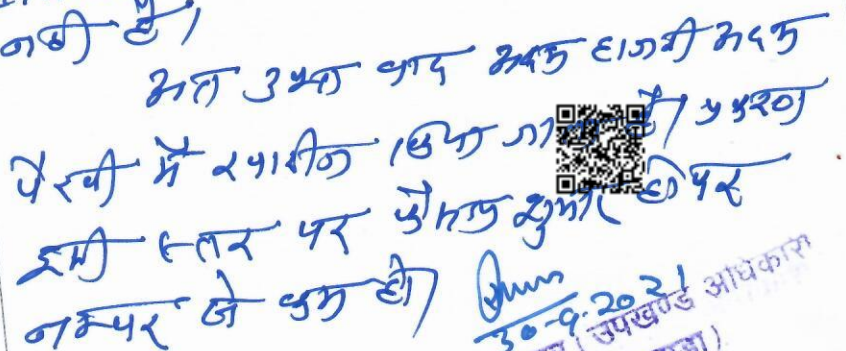 नही है।
अतः उक्त वाद अदम हाजरी अदम
पैरवी में खारीज किया जाता है। प्रकरण
इसी स्तर पर फैसल शुमार होकर
नम्बर से कम हो।
30-9-2021
उपखण्ड अधिकारी